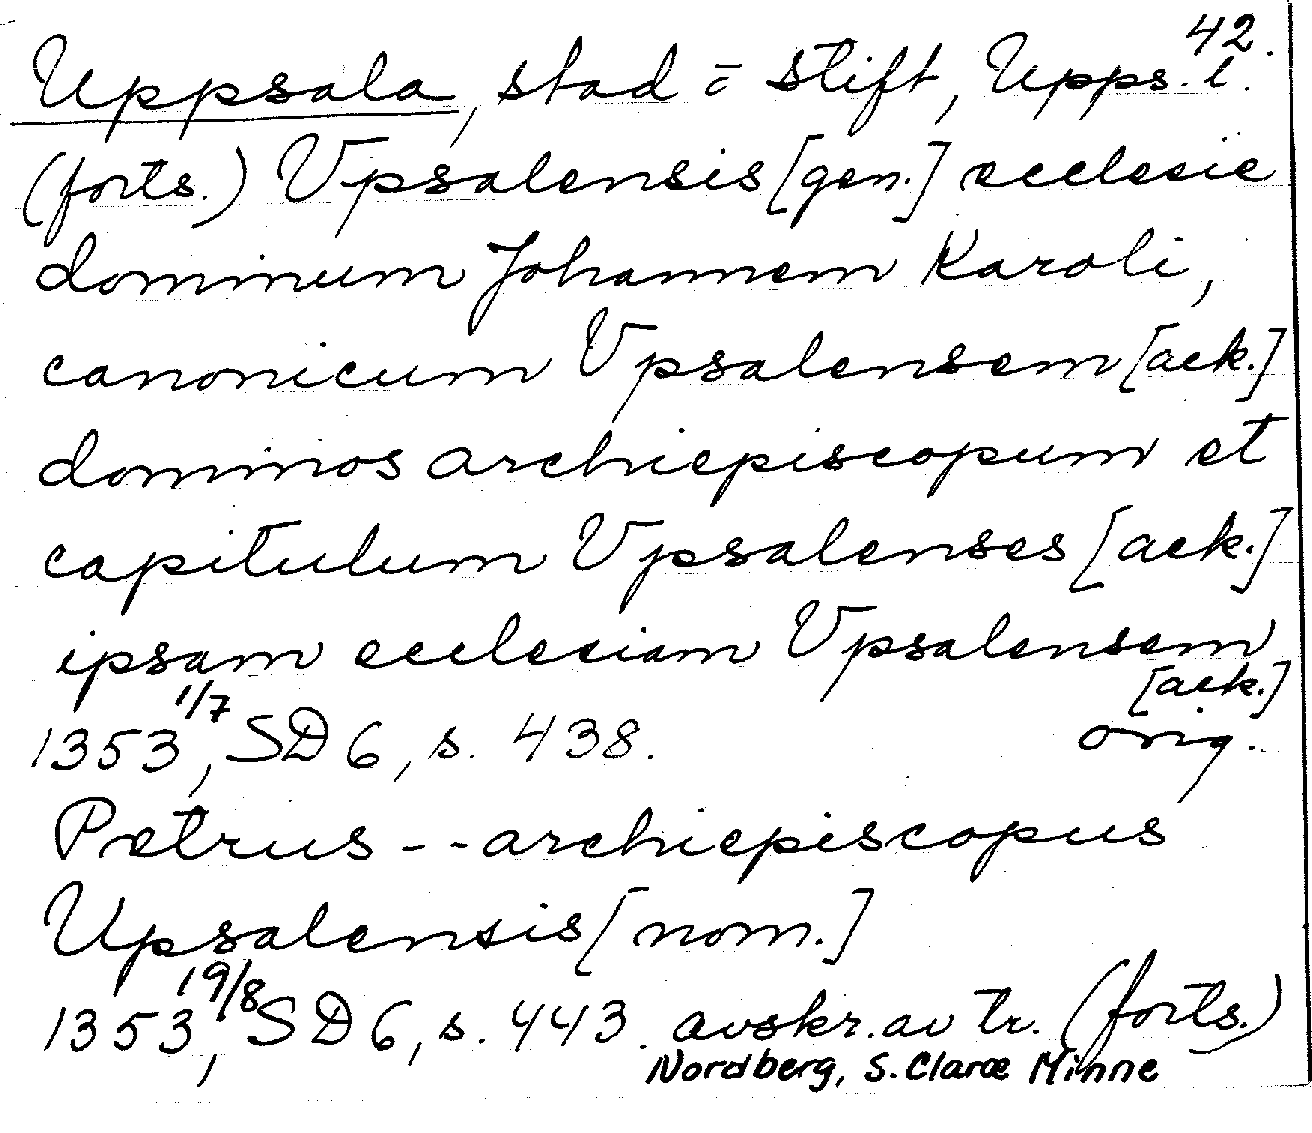 42.
Uppsala, stad o stift, Upps. l.
(forts.) Vpsalensis [gen.] ecclesie
dominum Johannem Karoli,
canonicum Vpsalensem [ack.]
dominos archiepiscopum et
capitulum Vpsalenses [ack.]
ipsam ecclesiam Vpsalensem
[ack.]
1353 1/7, SD 6, s. 438. orig.
Petrus -- archiepiscopus
Upsalensis [nom.]
1353 19/8, SD 6, s. 443. avskr. av tr. (forts.)
Nordberg, S. Claræ Minne